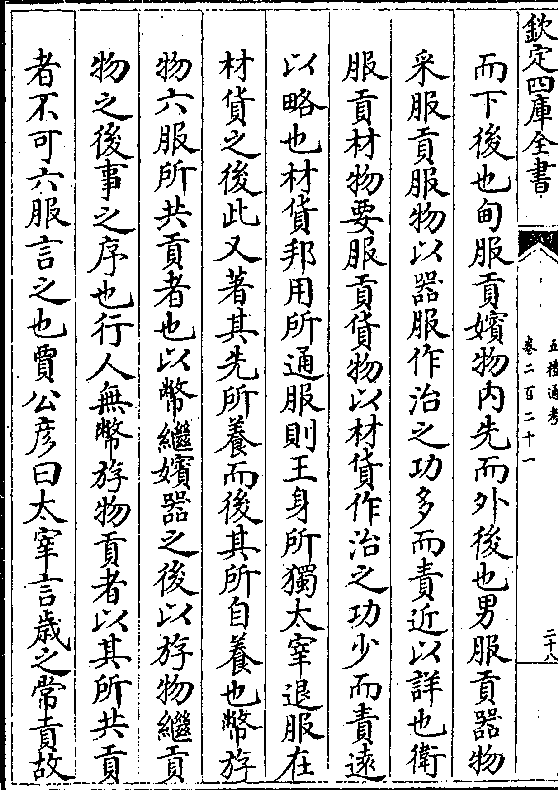 欽定四庫全書
五禮通考
卷二百二十一
二十八
而下後也甸服貢嬪物内先而外後也男服貢器物
采服貢服物以器服作治之功多而責近以詳也衛
服貢材物要服貢貨物以材貨作治之功少而責遠
以略也材貨邦用所通服則王身所獨太宰退服在
材貨之後此又著其先所養而後其所自養也幣斿
物六服所共貢者也以幣繼嬪器之後以斿物繼貢
物之後事之序也行人無幣斿物貢者以其所共貢
者不可六服言之也賈公彦曰太宰言歲之常貢故